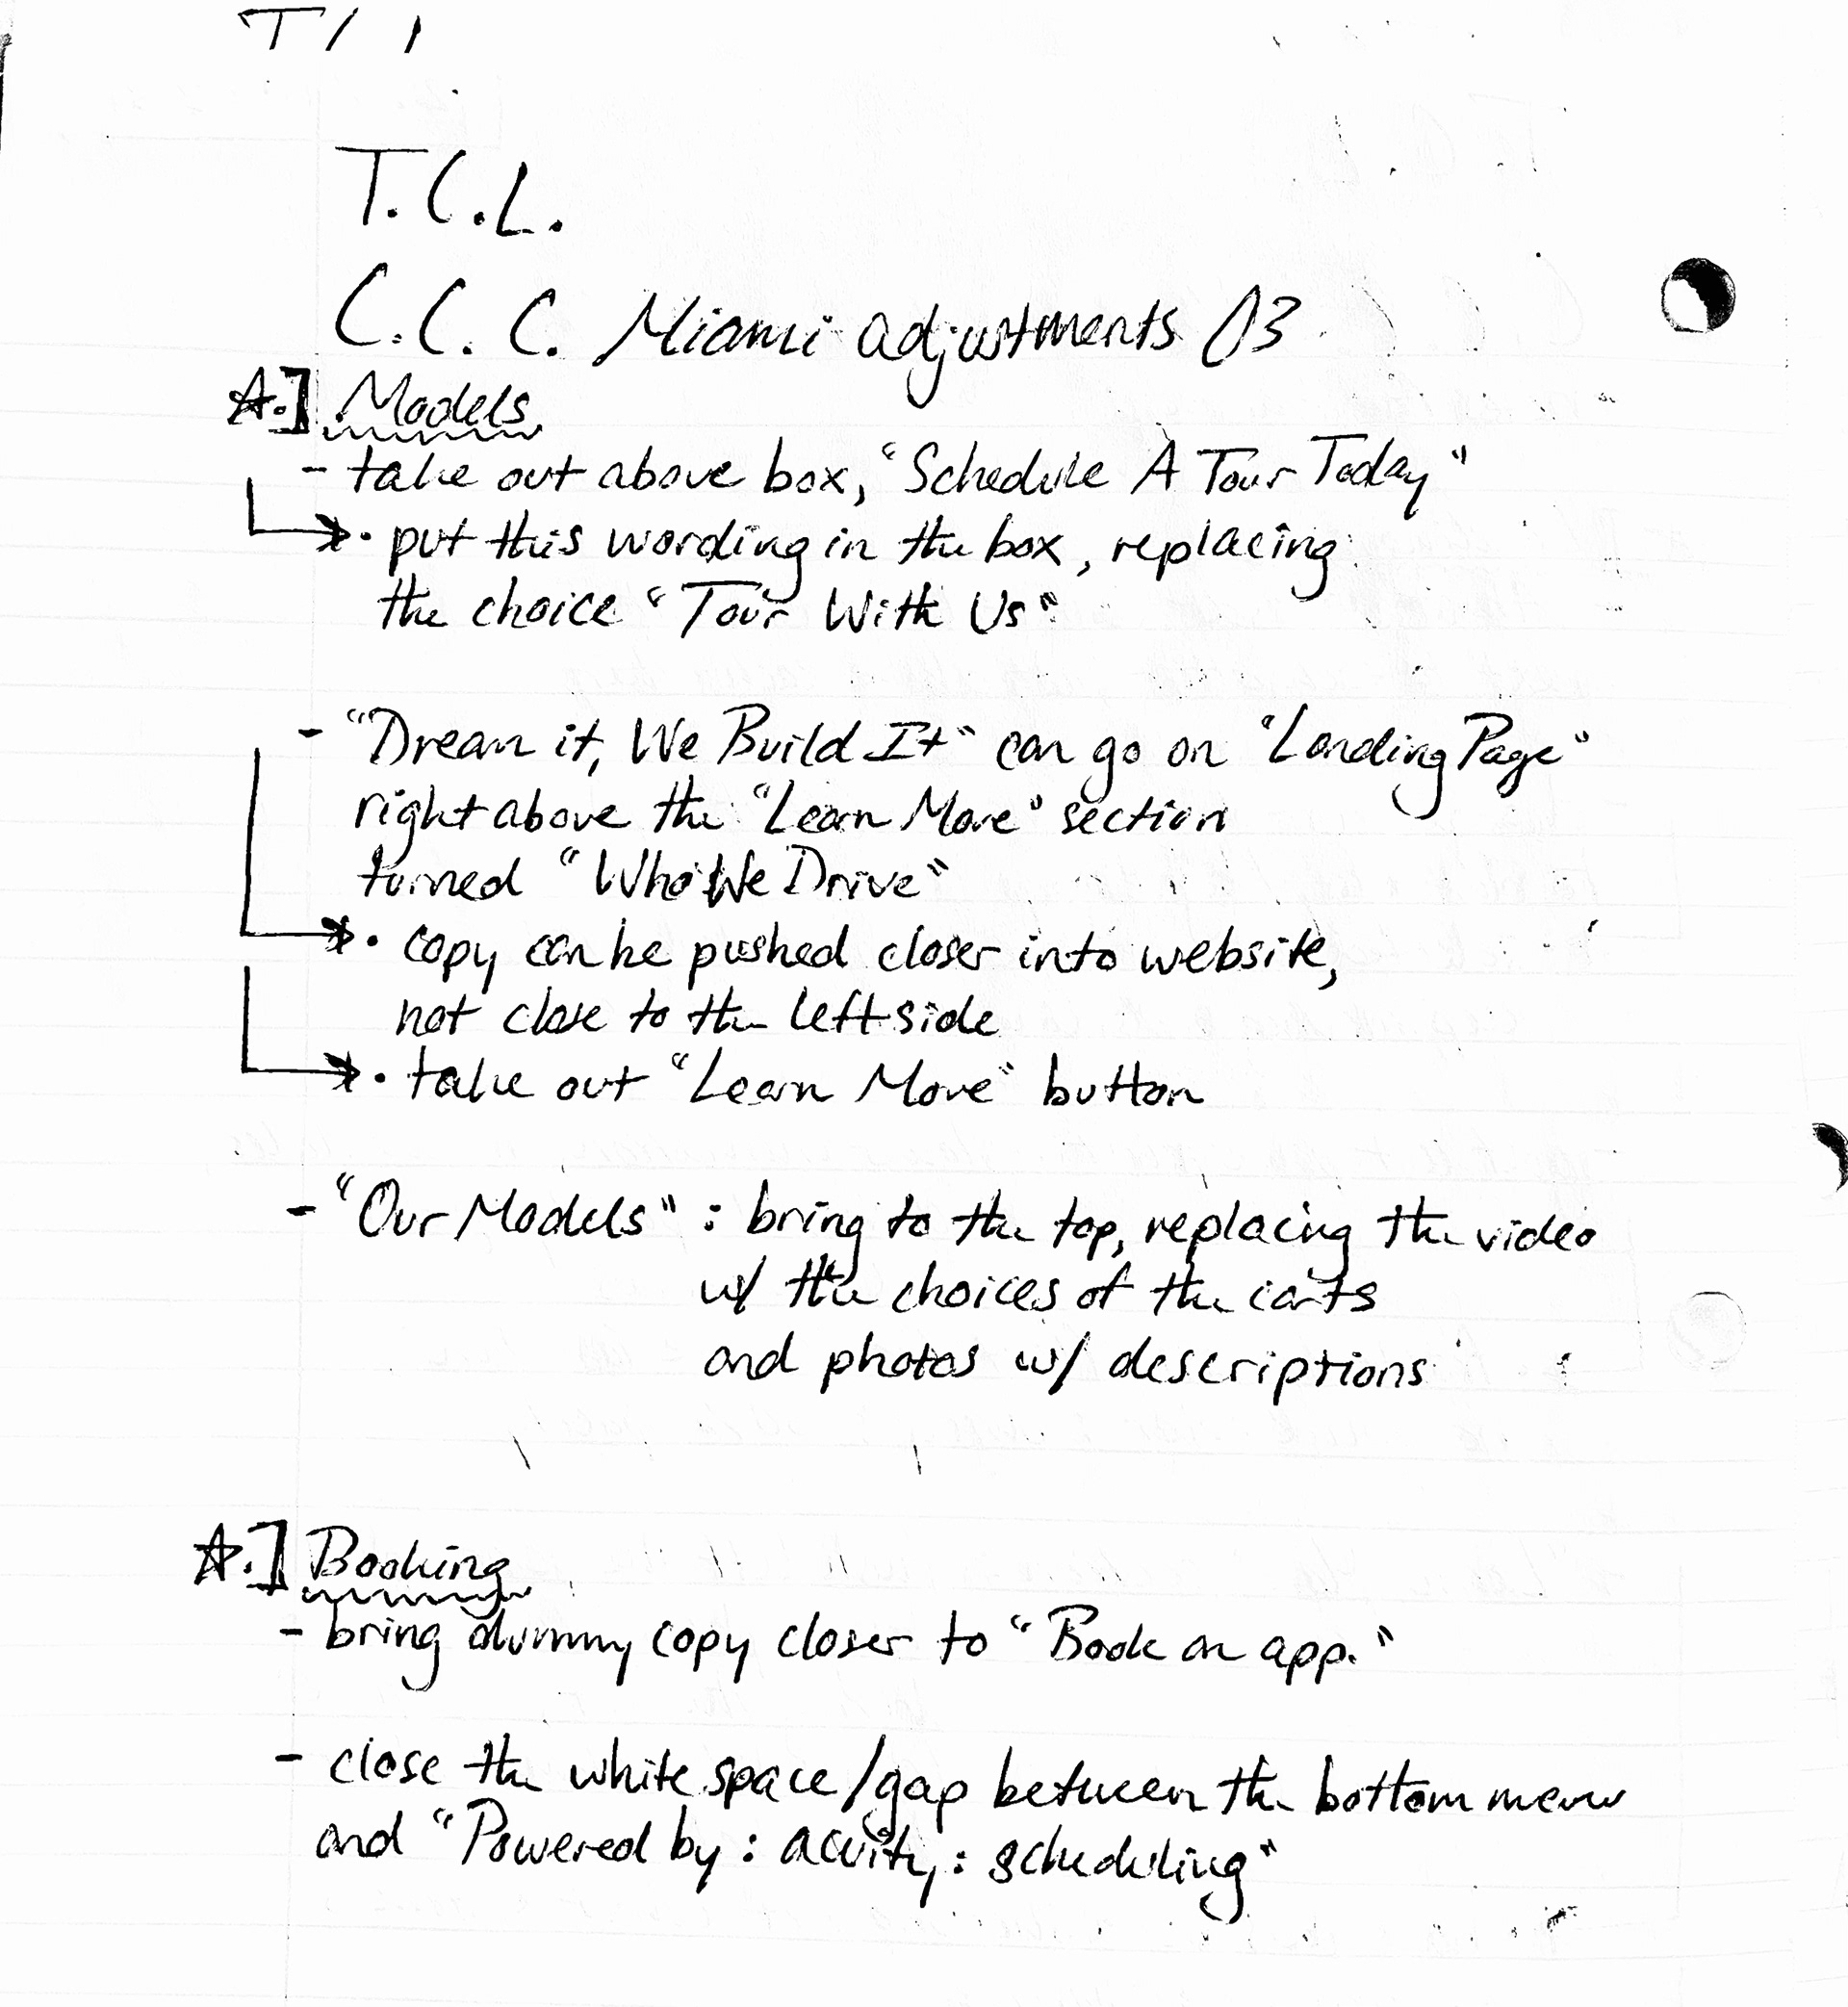 T.C.L.
C.C.C. Miami adjustments 03
☆.] Models
- take out above box, "Schedule A Tour Today"
• put this wording in the box, replacing
the choice "Tour With Us"
- "Dream it, We Build It" can go on "Landing Page"
right above the "Learn More" section
turned "Who We Drive"
• copy can be pushed closer into website,
not close to the left side
• take out "Learn More" button
- "Our Models" : bring to the top, replacing the video
w/ the choices of the carts
and photos w/ descriptions
☆.] Booking
- bring dummy copy closer to "Book an app."
- close the white space/gap between the bottom menu
and "Powered by : acuity : scheduling"